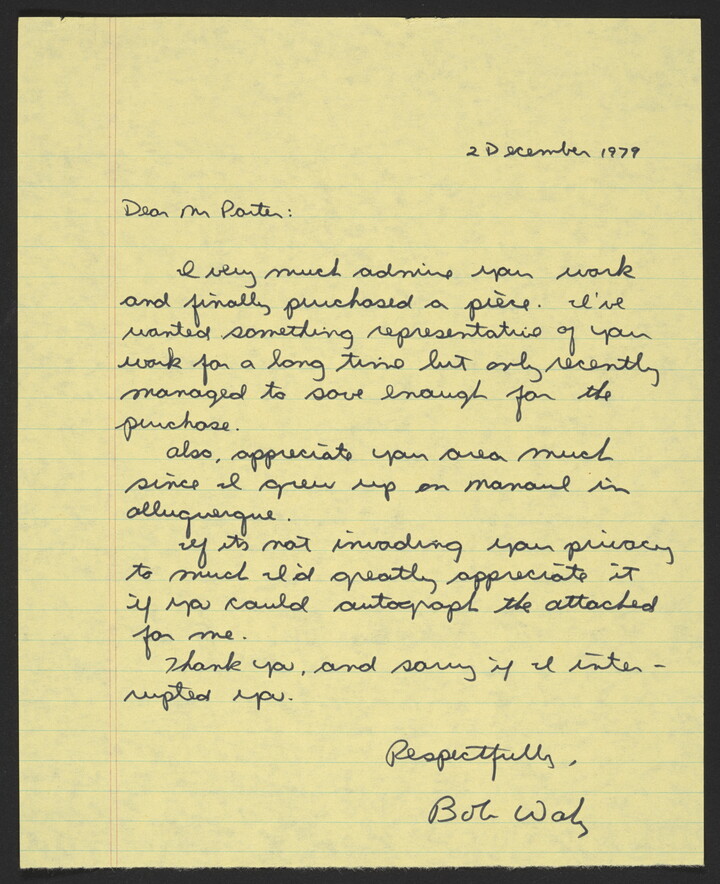 2 December 1979
Dear Mr Porter:
I very much admire your work
and finally purchased a piece. I've
wanted something representative of your
work for a long time but only recently
managed to save enough for the
purchase.
Also, appreciate your area much
since I grew up on Manaul in
Alluquerque.
If its not invading your privacy
to much I'd greatly appreciate it
if you could autograph the attached
for me.
Thank you, and sorry if I inter-
rupted you.
Respectfully,
Bob